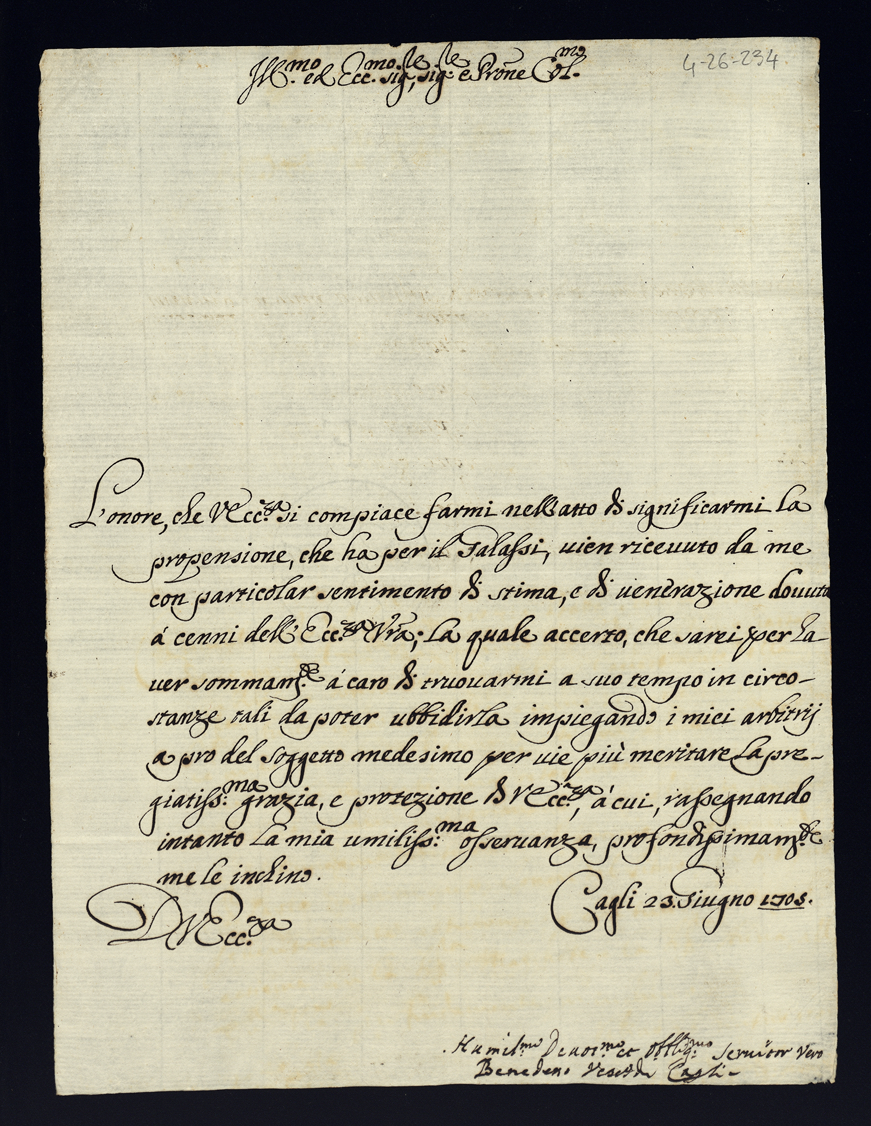 Ill.mo ed Ecc.mo sig.re, sig.re e Prōne Col.mo
4-26-234
L'onore, che V Ecc.za si compiace farmi nell'atto di significarmi la
propensione, che ha per il Galassi, vien ricevuto da me
con particolar sentimento di stima, e di venerazione dovuta
á cenni dell'Ecc.za Vrã; la quale accerto, che sarei per ha-
ver sommam.te á caro di truovarmi a suo tempo in circo-
stanze tali da poter ubbidirla impiegando i miei arbitrij
a pro del soggetto medesimo per vie più meritare la pre-
giatiss.ma grazia, e protezione di V Ecc.za, á cui, rassegnando
intanto la mia umiliss.ma osservanza, profondissimam.te
me le inchino.
Cagli 23. Giugno 1705.
D V Ecc.za
Humil.mo Devot.mo et Obblig.mo Servitor Vero
Benedetto Vescovo di Cagli